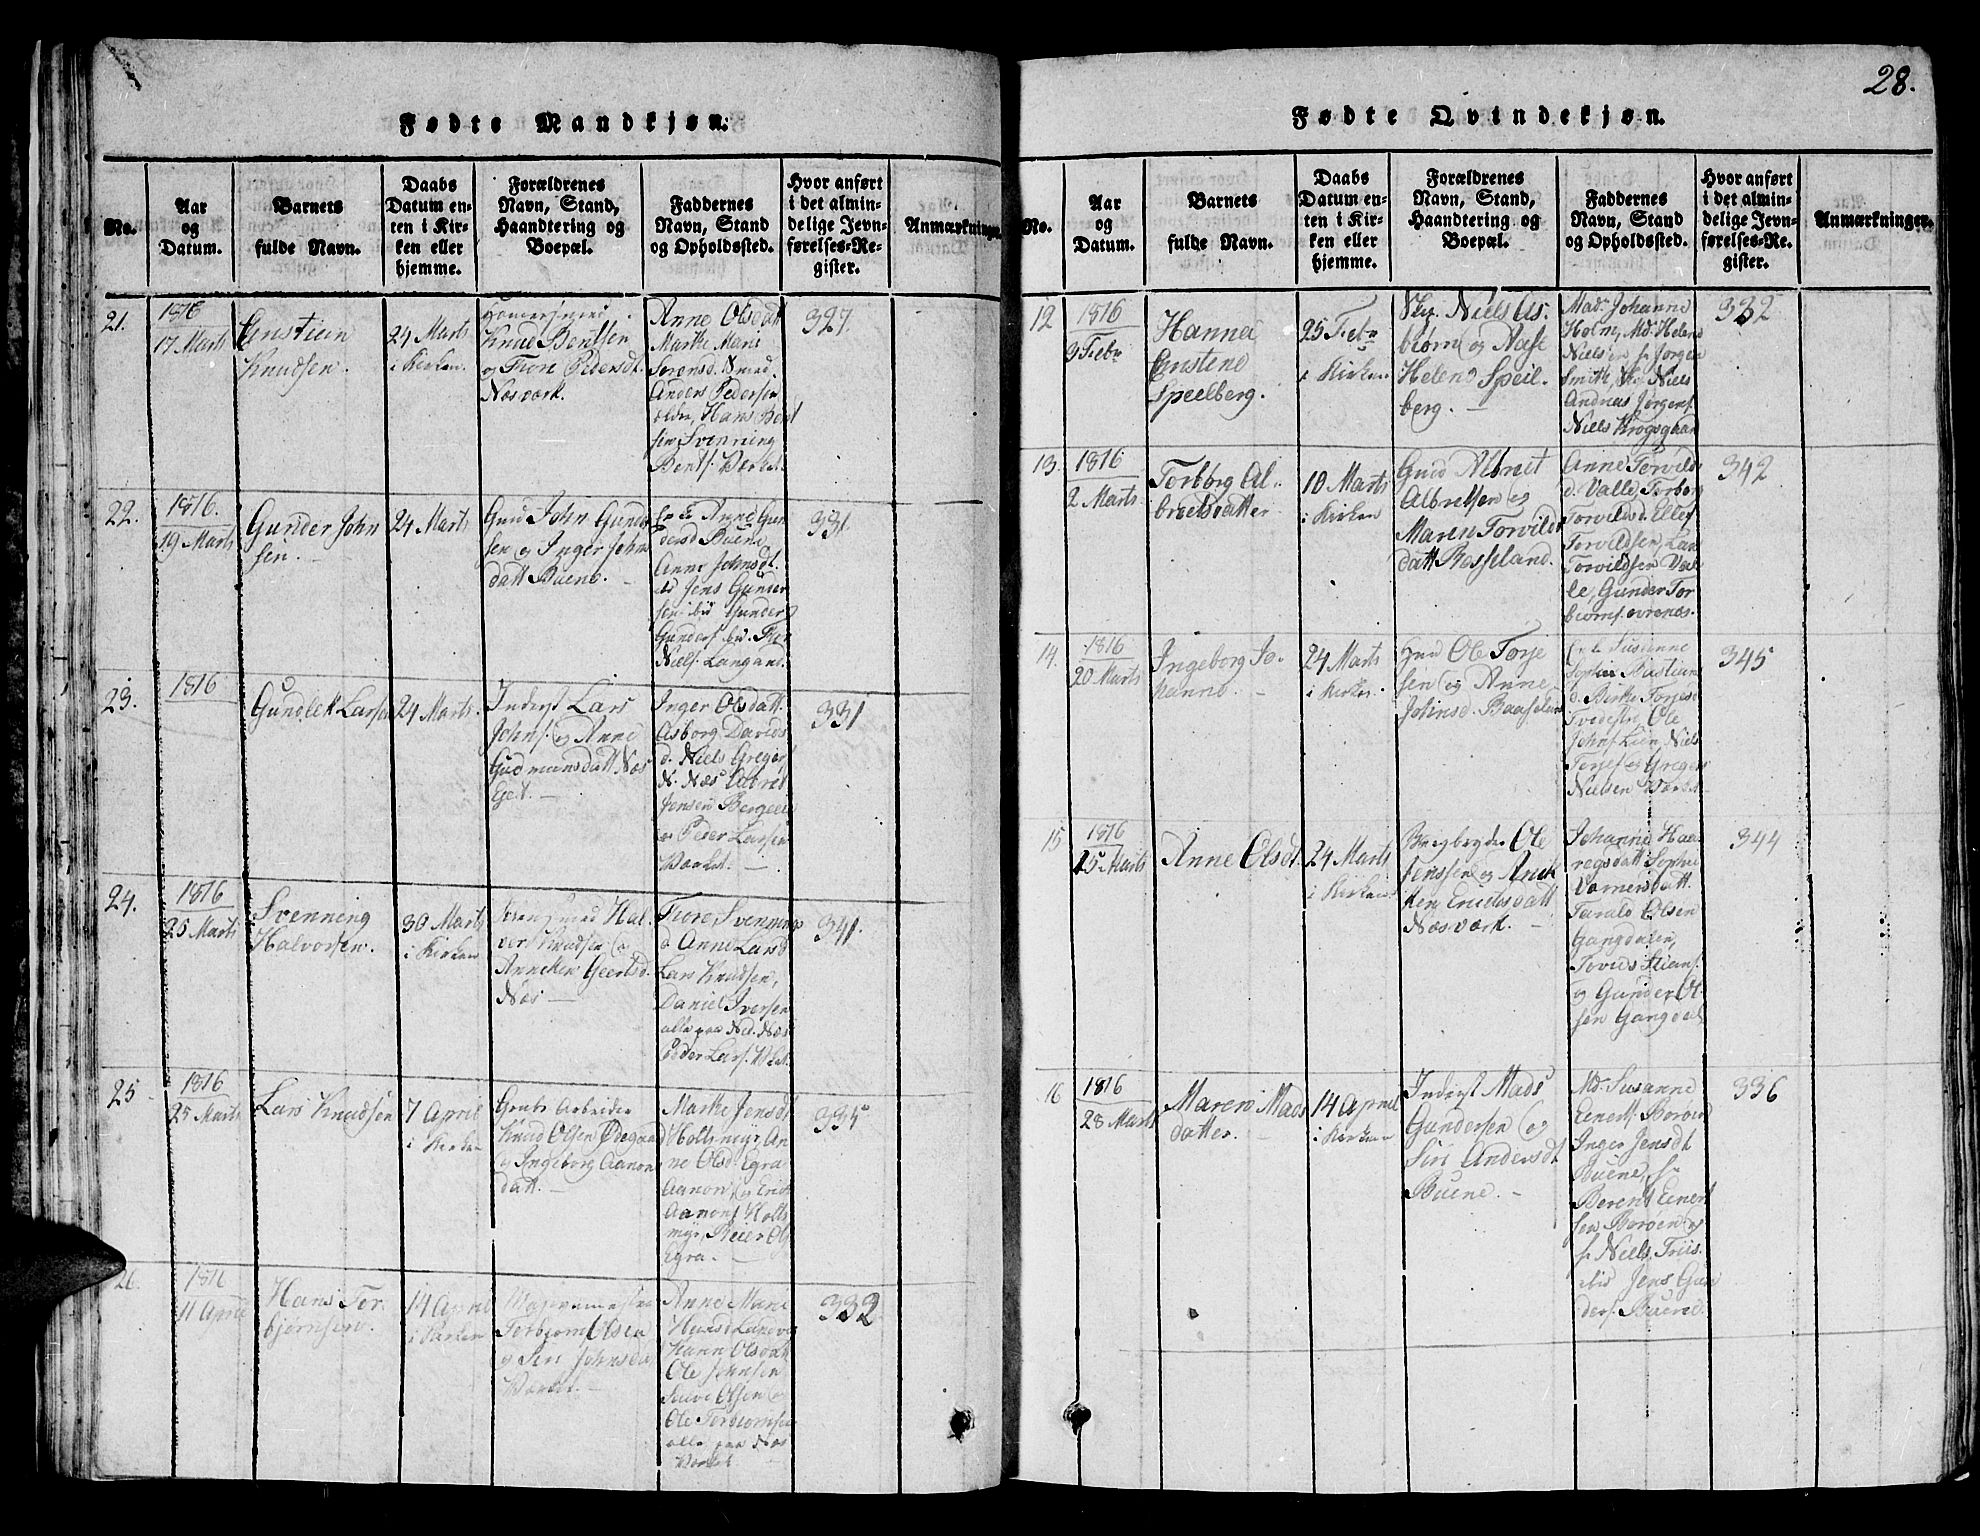 28.
Fødte Mandkjøn.
No.
Aar
og
Datum.
Barnets
fulde Navn.
Daabs
Datum en-
ten i Kir-
ken eller
hjemme.
Forældrenes
Navn, Stand,
Haandtering og
Boepæl.
Faddernes
Navn, Stand
og Opholdssted.
Hvor anført
i det almin-
delige Jevn-
førelses-Re-
gister.
Anmærkninger.
21.
1816
17 Marts
Knudsen.
24 Marts
i Kirken.
Knud Bentsen
og Tore Pedersdt.
Næsværk.
Anne Olsdatt
Marthe Marie
Sørensd.
Anders Pedersen
ældre, Hans Bent
sen, Svenning
Bents. Værket.
327.
22.
1816.
19 Marts
Gunder John
sen.
24 Marts
Gmd John Gunder
sen og Inger Johns
datt Buene.
Anne Gun
dersd Buene,
Anne Johnsdt.
Jens Gunder
sen
Gunders
Niels. Langang.
331.
23.
1816
Gundlek Larsen
24 Marts.
Inderst Lars
Johns. og Anne
Gudmunsdatt Næs
Eiet.
Inger Olsdatt.
Asborg Davids
d. Niels Greger
N. Næs Albret
Jensen Berge
og Peder Larsen
Værket.
331
24.
1816
25 Marts
Svenning
Halvorsen.
30 Marts
i Kirken
Hal
vor Knudsen og
Anneken Geertsd.
Næs
Tore Svennings
d Anne Larsd
Lars Knudsen,
Daniel Iversen
alle paa Næs
Peder Lars.
341.
25
1816
25 Marts
Lars Knudsen
7 April
i Kirken
Grube Arbeider
Knud Olsen Ødegaard
og Ingeborg Aanons
datt.
Marthe Jensdt
Holtsmyr, An
ne Olsd. Egra
Aanon og Erik
Aanons Holts
myr, Reier Ols
Egra.
335
26.
1816
11 April
Hans Tor
bjørnsen.
14 April
i Kirken
Torbjørn Olsen
og Siri Johnsdat
Værket.
Anne Marie
Hansd Landvig
Hanne Olsdatt
Ole Johnsen
Salve Olsen og
Ole Torbiørnsen
alle paa Næs
Værket
332
Fødte Qvindekjøn.
No.
Aar
og
Datum.
Barnets
fulde Navn.
Daabs
Datum en-
ten i Kir-
ken eller
hjemme.
Forældrenes
Navn, Stand,
Haandtering og
Boepæl.
Faddernes
Navn, Stand
og Opholdssted.
Hvor anført
i det almin-
delige Jevn-
førelses-Re-
gister.
Anmærkninger.
12
1816
3 Febr
Hanna
Cristene
Speelberg.
25 Febr
i Kirken
Niels As-
biørn og
Helene Speil-
berg.
Mad. Johanne
Holm, Md. Helene
Nielsen Jørgen
Smith, Niels
Andreas Jørgens.
Niels Krogsgaar
332
13.
1816
2 Marts
Torborg Al-
bretsdatter.
10 Marts
i Kirken
Gmd Albret
Albretsen og
Maren Torvilds
datt Rosseland.
Anne Torvilds
d. Valle, Torborg
Torvildsd. Ellef
Torvildsen, Lars
Torvildsen Val-
le, Gunder Tor
biorns. ovrenæs.
342
14.
1816
20 Marts
Ingeborg Jo-
hanne.
24 Marts
i Kirken.
Gmd Ole Torje
sen og Anne
Johnsd. Baaseland
Susanne
Sophie Bastian
d. Torjes
Tvedestr, Ole
Johns. Lien, Niels
Torjes. og Gregers
Nielsen Værket
345
15
1816
15 Marts
Anne Olsdt.
24 Marts
i Kirken.
Ole
Jenssen og Anek
ken Eriksdatt
Næsværk.
Johanne Haa
regsdatt Sophie
Varnersdatt.
Tarald Olsen
Gangdalen,
Tovus Stians.
og Gunder Ol-
sen Gangdal
344
16
1816
28 Marts
Maren Mads
datter.
14 April
i Kirken
Inderst Mads
Gundersen og
Siri Andersdt
Buene.
Md. Susanne
Eeners. Borøen
Inger Jensdt
Buene, Sr
Berent Eener
sen Borøen og
Sr Niels Friis.
Jens Gun
ders. Buene.
336